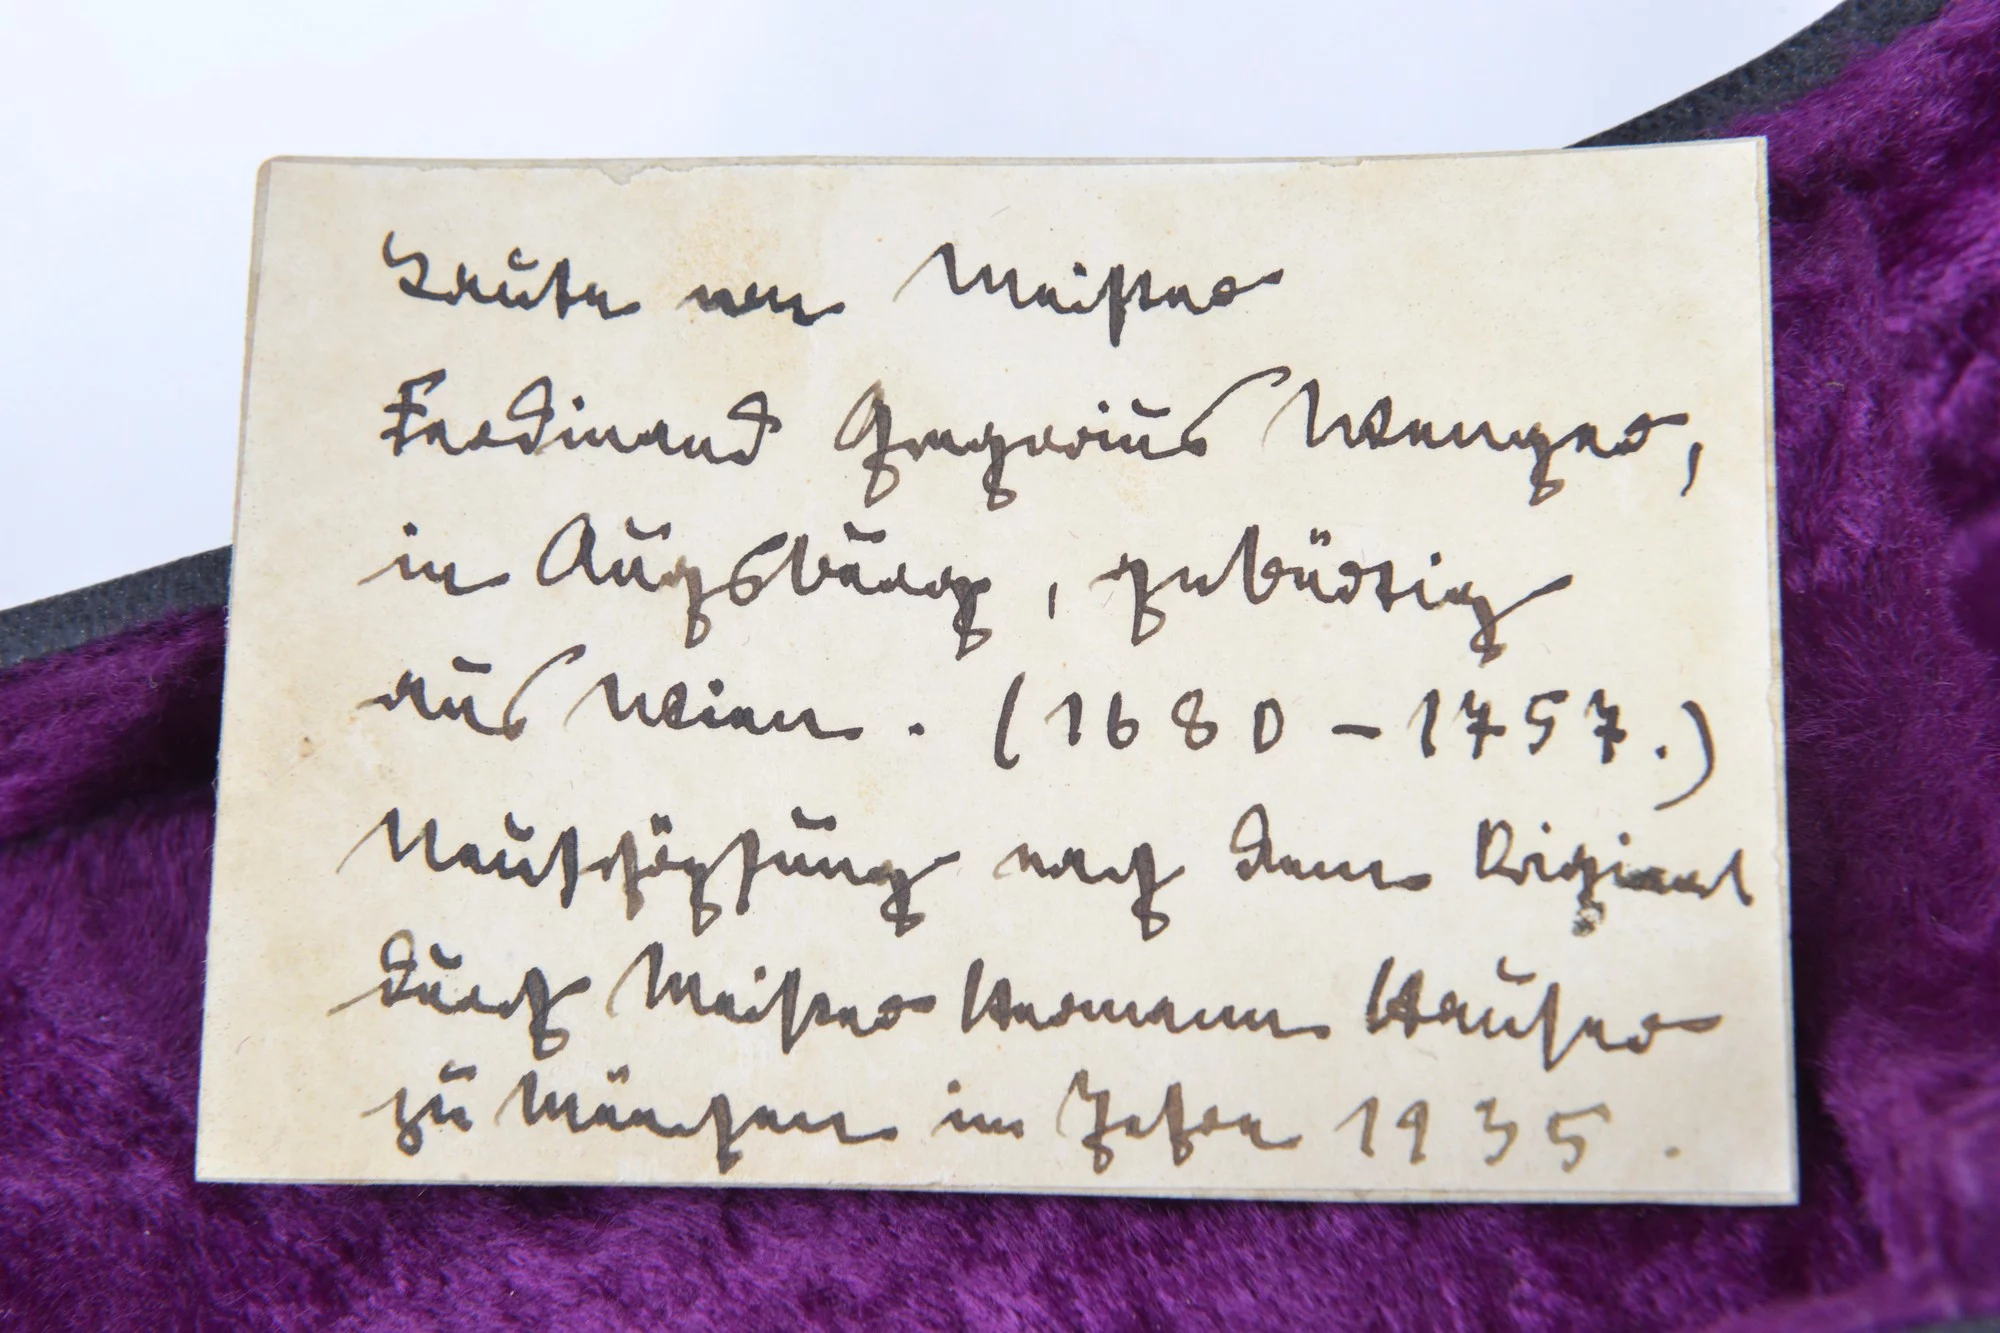 Laute von Meister
Ferdinand Gregorius Wenger,
in Augsburg, gebürtig
aus Wien. (1680 - 1757.)
Neuschöpfung nach dem Original
durch Meister Hermann Hauser
zu München im Jahre 1935.